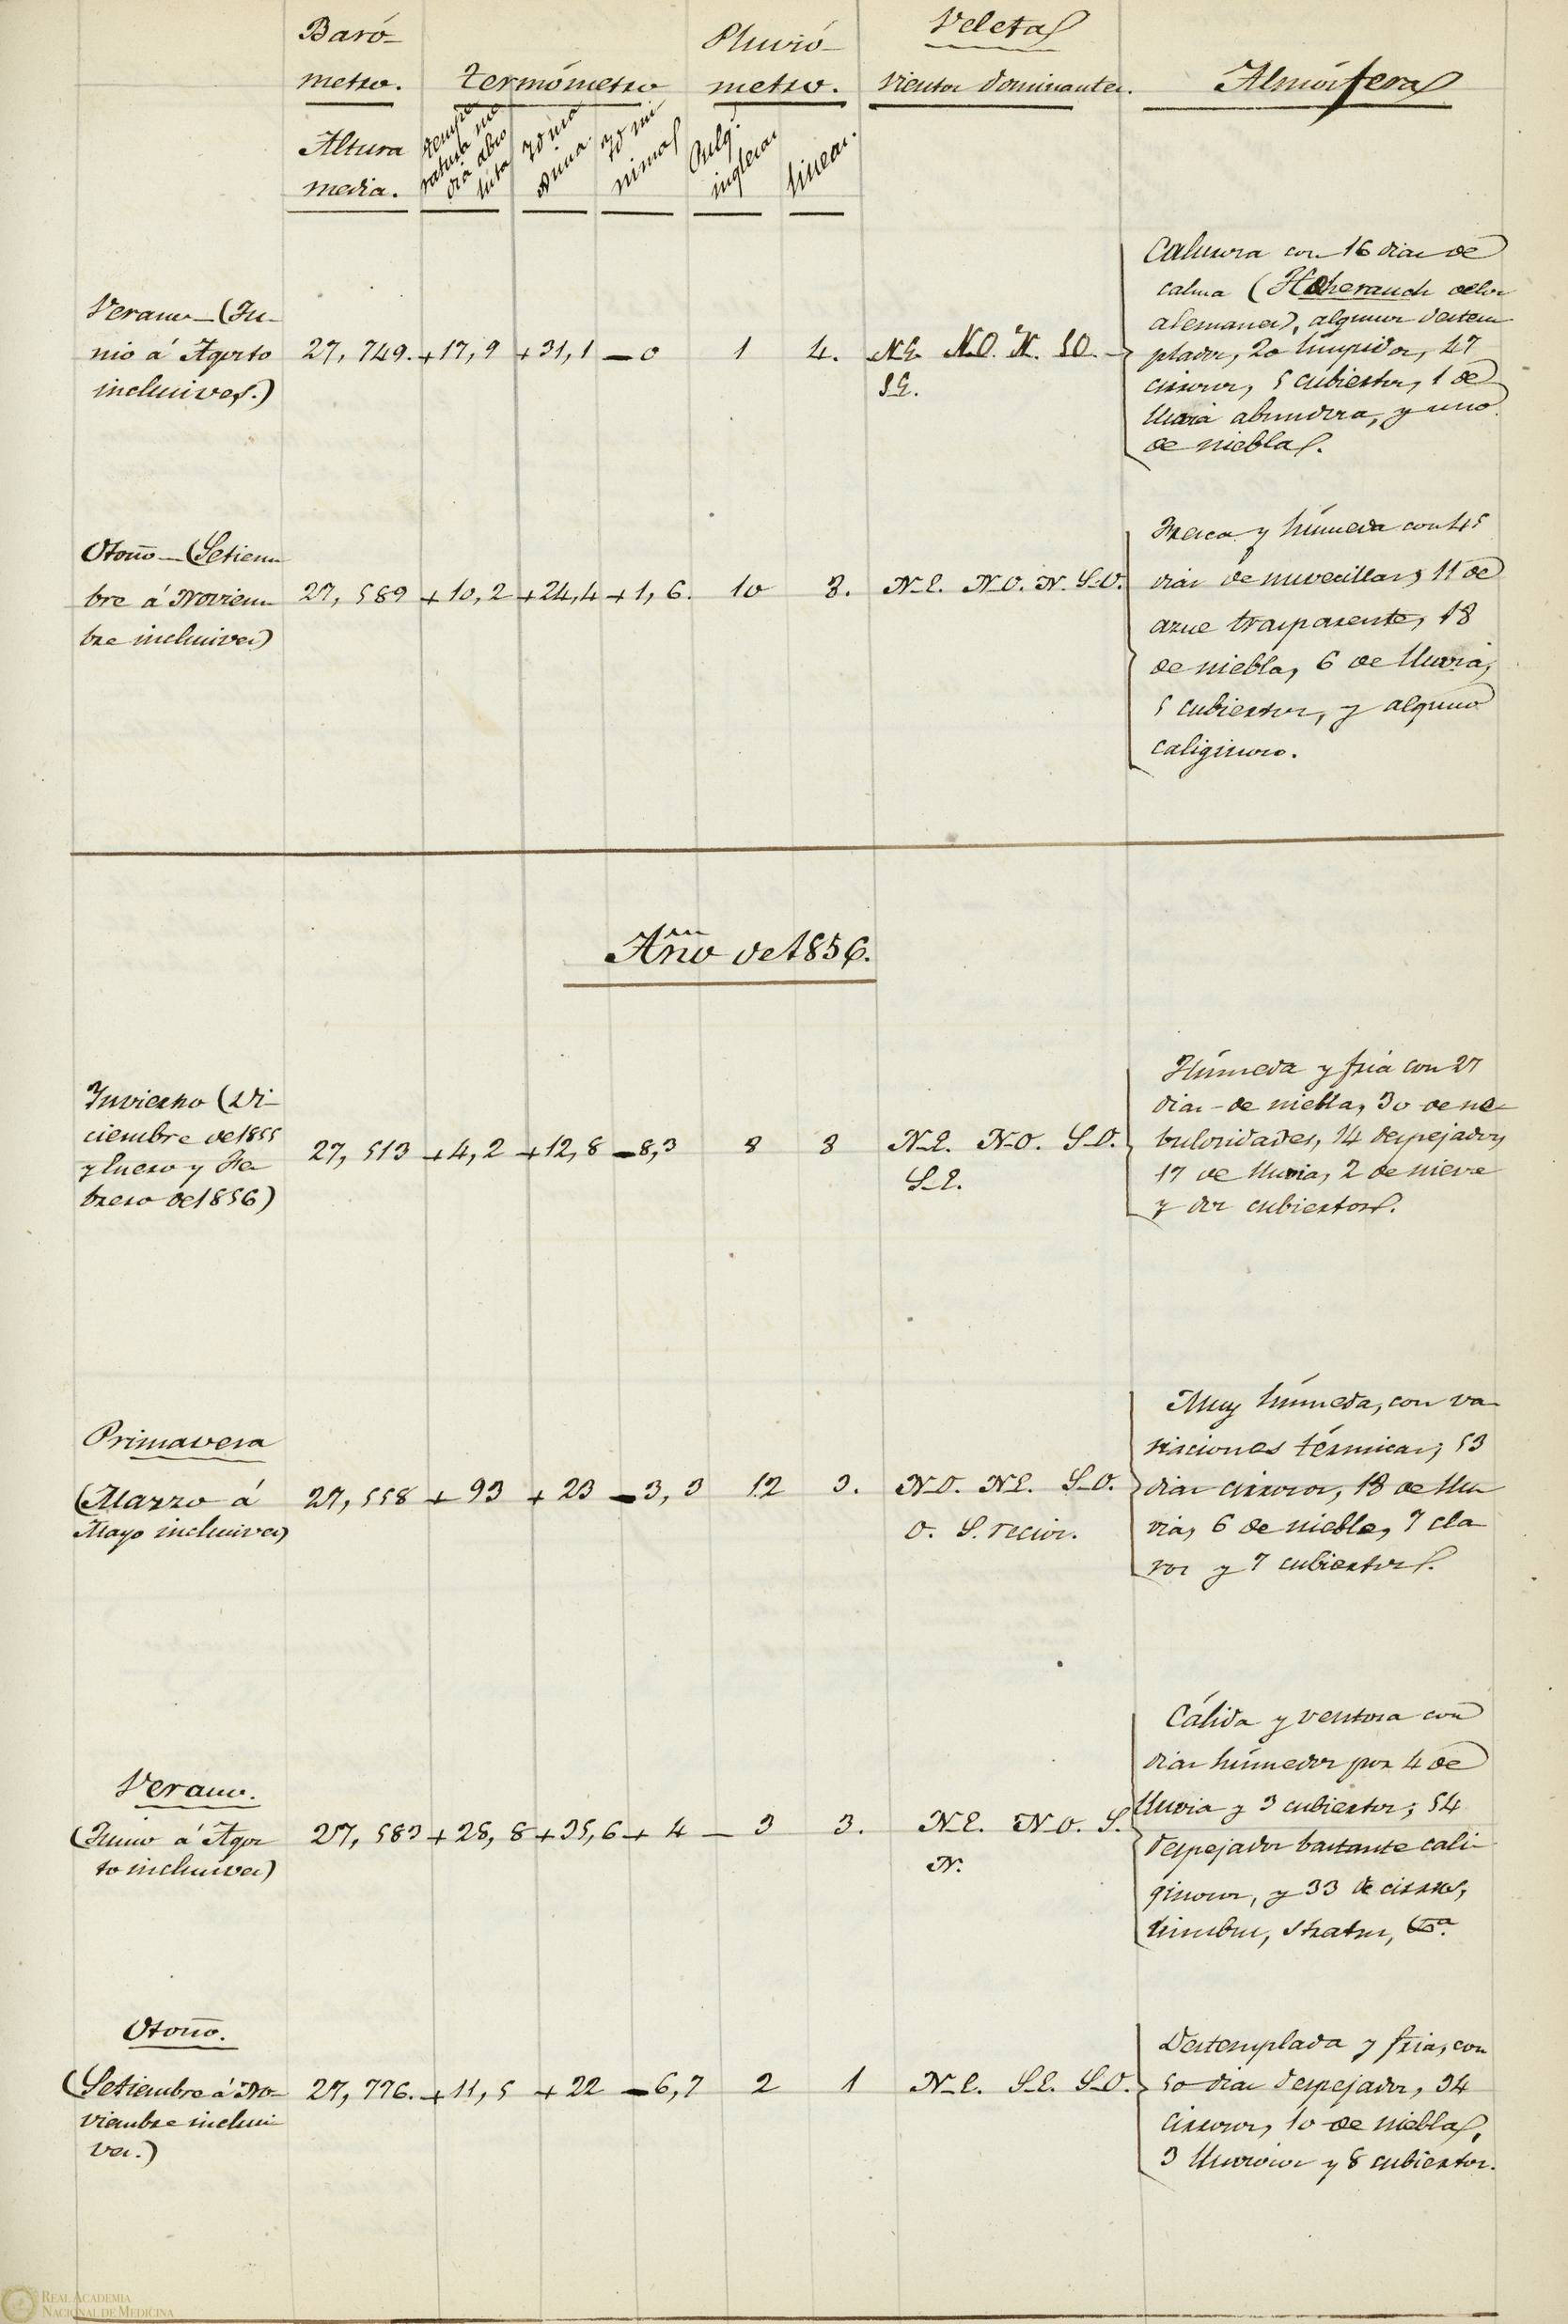 Baró-
metro.
Termómetro
Pluvió-
metro.
Veleta
Vientos dominantes.
Atmósfera
Altura
media.
Tempe
ratura me
dia abso
luta
Id má
xima
Id mí
nima
Pulg.s
inglesas
Lineas.
Verano-(Ju-
nio á Agosto
inclusives.)
27,749. +17,9 +31,1 -0 1 4. N.E. N.O. N. S.O.
S.E.
Calurosa con 16 dias de
calma (Hoherauch de los
alemanes), algunos destem
plados, 20 límpidos, 47
cirrosos, 5 cubiertos, 1 de
lluvia abundosa, y uno
de niebla.
Otoño-(Setiem
bre á Noviem-
bre inclusives)
27,589 +10,2 +24,4 +1,6. 10 3. N-E. N-O. N. S-O.
Fresca y húmeda con 45
dias de nuvecillas, 11 de
azul trasparente, 18
de niebla, 6 de lluvia,
5 cubiertos, y alguno
caliginoso.
Año de 1856.
Invierno (Di-
ciembre de 1855
y Enero y Fe-
brero de 1856)
27,513 +4,2 +12,8 -8,3 8 8 N-E. N-O. S-O.
S-E.
Húmeda y fria con 27
dias de niebla, 30 de ne-
bulosidades, 14 despejados,
17 de lluvia, 2 de nieve
y dos cubiertos.
Primavera
(Marzo á
Mayo inclusives)
27,558 +93 +23 -3,3 12 3. N-O. N-E. S-O.
O. S. recios.
Muy húmeda, con va-
riaciones térmicas, 53
dias cirrosos, 18 de llu-
via, 6 de niebla, 7 cla-
ros y 7 cubiertos.
Verano.
(Junio á Agos
to inclusives)
27,583 +28,8 +35,6 +4 - 3 3. N-E. N-O. S.
N.
Cálida y ventosa con
dias húmedos por 4 de
lluvia y 3 cubiertos; 54
despejados bastante cali-
ginosos, y 33 de cirros,
nimbus, stratus, &.a
Otoño.
(Setiembre á No-
viembre inclusi-
ves.)
27,776. +11,5 +22 -6,7 2 1 N-E. S-E. S-O.
Destemplada y fria, con
50 dias despejados, 34
cirrosos, 10 de niebla,
3 lluviosos y 8 cubiertos.
REAL ACADEMIA
NACIONAL DE MEDICINA